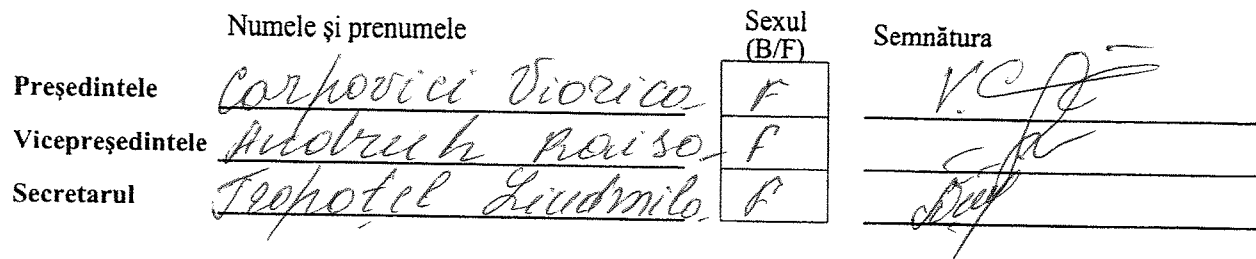 Numele și prenumele Sexul (B/F) Semnătura
Președintele Carpovici Viorica F
Vicepreședintele Andreeh Raisa F
Secretarul Tropoțel Liudmila F